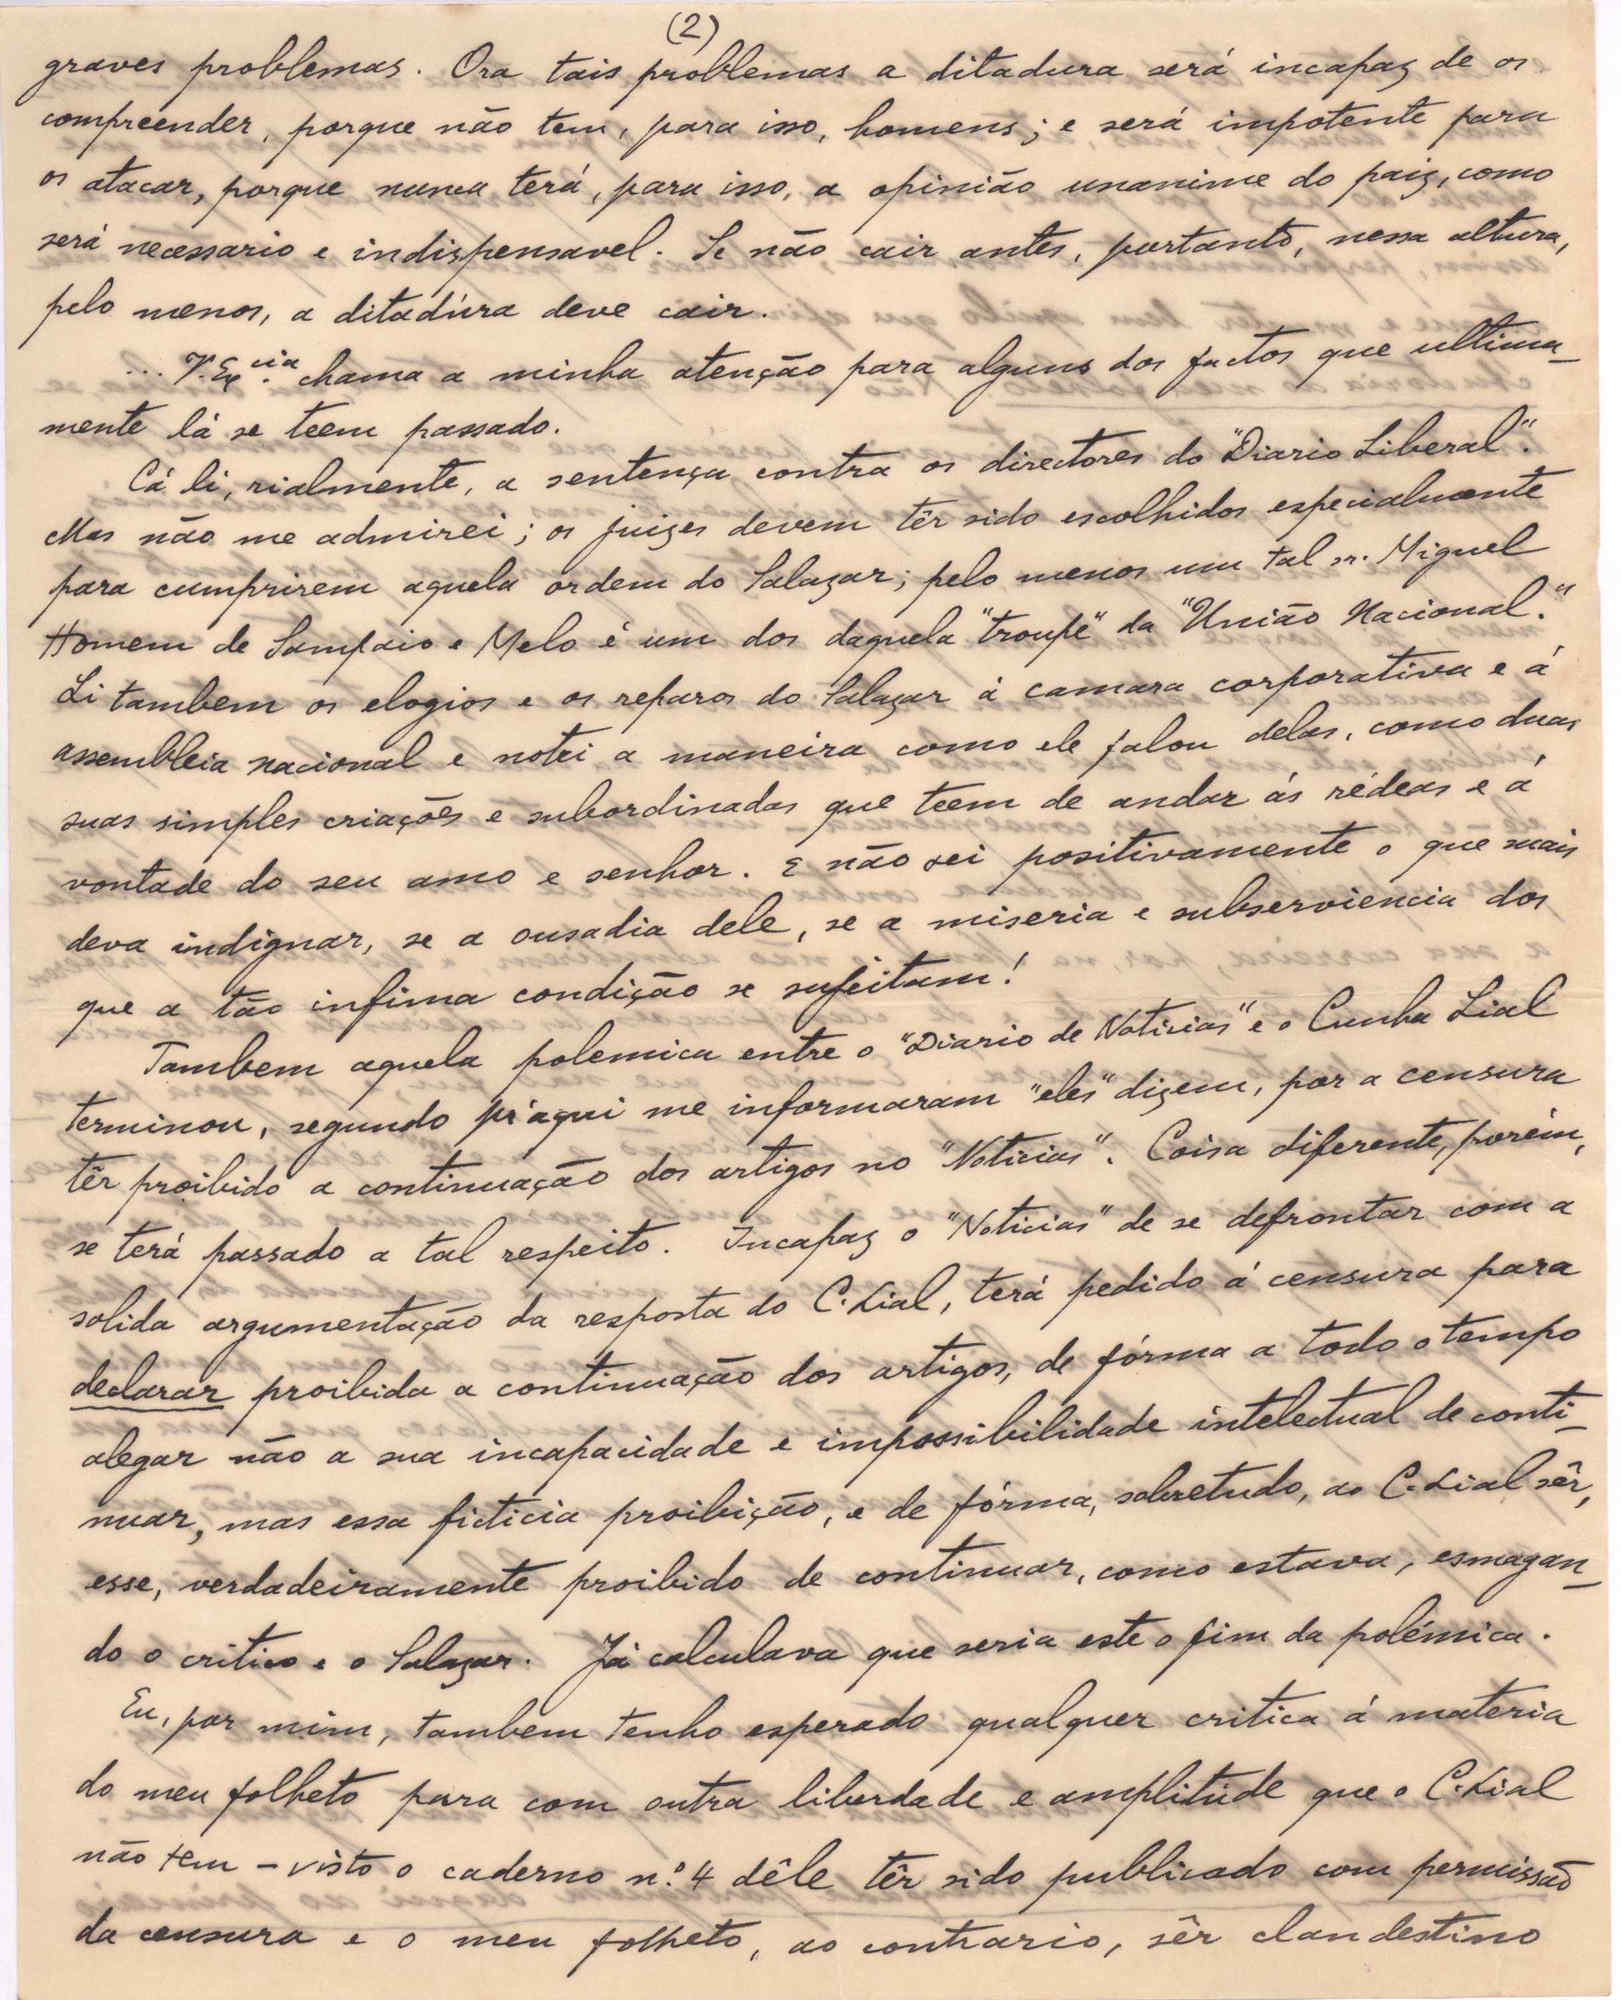 (2)
graves problemas. Ora tais problemas a ditadura será incapaz de os
compreender, porque não tem, para isso, homens; e será impotente para
os atacar, porque nunca terá, para isso, a opinião unanime do paiz, como
será necessario e indispensavel. Se não cair antes, portanto, nessa altura,
pelo menos, a ditadúra deve cair.
... V. Ex.cia chama a minha atenção para alguns dos factos que ultima-
mente lá se teem passado.
Cá li, rialmente, a sentença contra os directores do "Diario Liberal".
Mas não me admirei; os juizes devem têr sido escolhidos especialmente
para cumprirem aquela ordem do Salazar; pelo menos um tal sr. Miguel
Homem de Sampaio e Melo é um dos daquela "troupe" da "União Nacional."
Li tambem os elogios e os reparos do Salazar á camara corporativa e á
assembleia nacional e notei a maneira como ele falou delas, como duas
suas simples criações e subordinadas que teem de andar ás rédeas e á
vontade do seu amo e senhor. E não sei positivamente o que mais
deva indignar, se a ousadia dele, se a miseria e subserviencia dos
que a tão infima condição se sujeitam!
Tambem aquela polemica entre o "Diario de Noticias" e o Cunha Lial
terminou, segundo pr'aqui me informaram "eles" dizem, por a censura
têr proibido a continuação dos artigos no "Noticias". Coisa diferente, porém,
se terá passado a tal respeito. Incapaz o "Noticias" de se defrontar com a
solida argumentação da resposta do C. Lial, terá pedido á censura para
declarar proibida a continuação dos artigos, de fórma a todo o tempo
alegar não a sua incapacidade e impossibilidade intelectual de conti-
nuar, mas essa ficticia proibição, e de fórma, sobretudo, ao C. Lial sêr,
esse, verdadeiramente proibido de continuar, como estava, esmagan-
do o critico e o Salazar. Já calculava que seria este o fim da polémica.
Eu, por mim, tambem tenho esperado qualquer critica á materia
do meu folheto para com outra liberdade e amplitude que o C. Lial
não tem - visto o caderno n.º 4 dêle têr sido publicado com permissão
da censura e o meu folheto, ao contrario, sêr clandestino